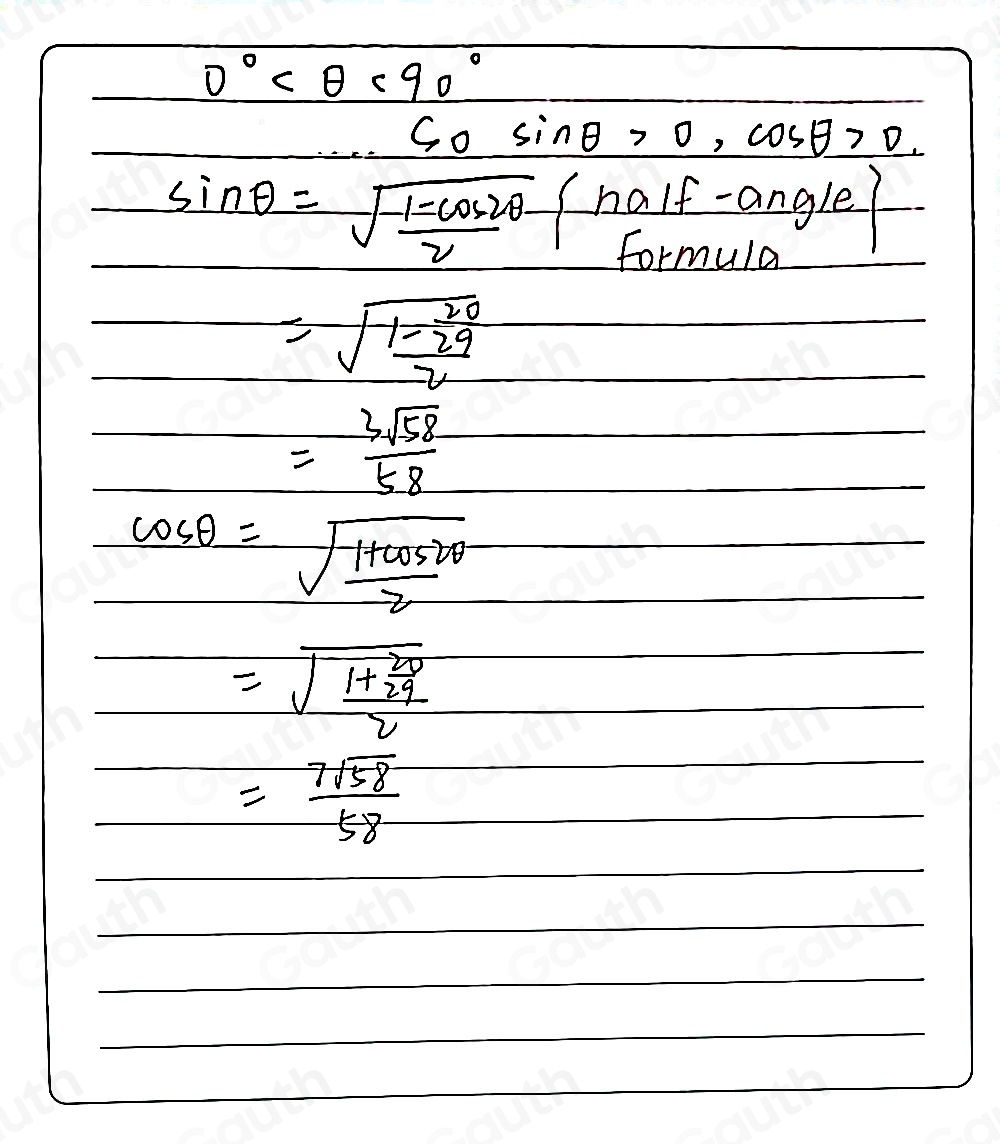 0° < θ < 90°
So sinθ > 0, cosθ > 0.
sinθ = √((1-cos2θ)/2) {half-angle
formula}
= √((1-20/29)/2)
= 3√58/58
cosθ = √((1+cos2θ)/2)
= √((1+20/29)/2)
= 7√58/58
Gauth